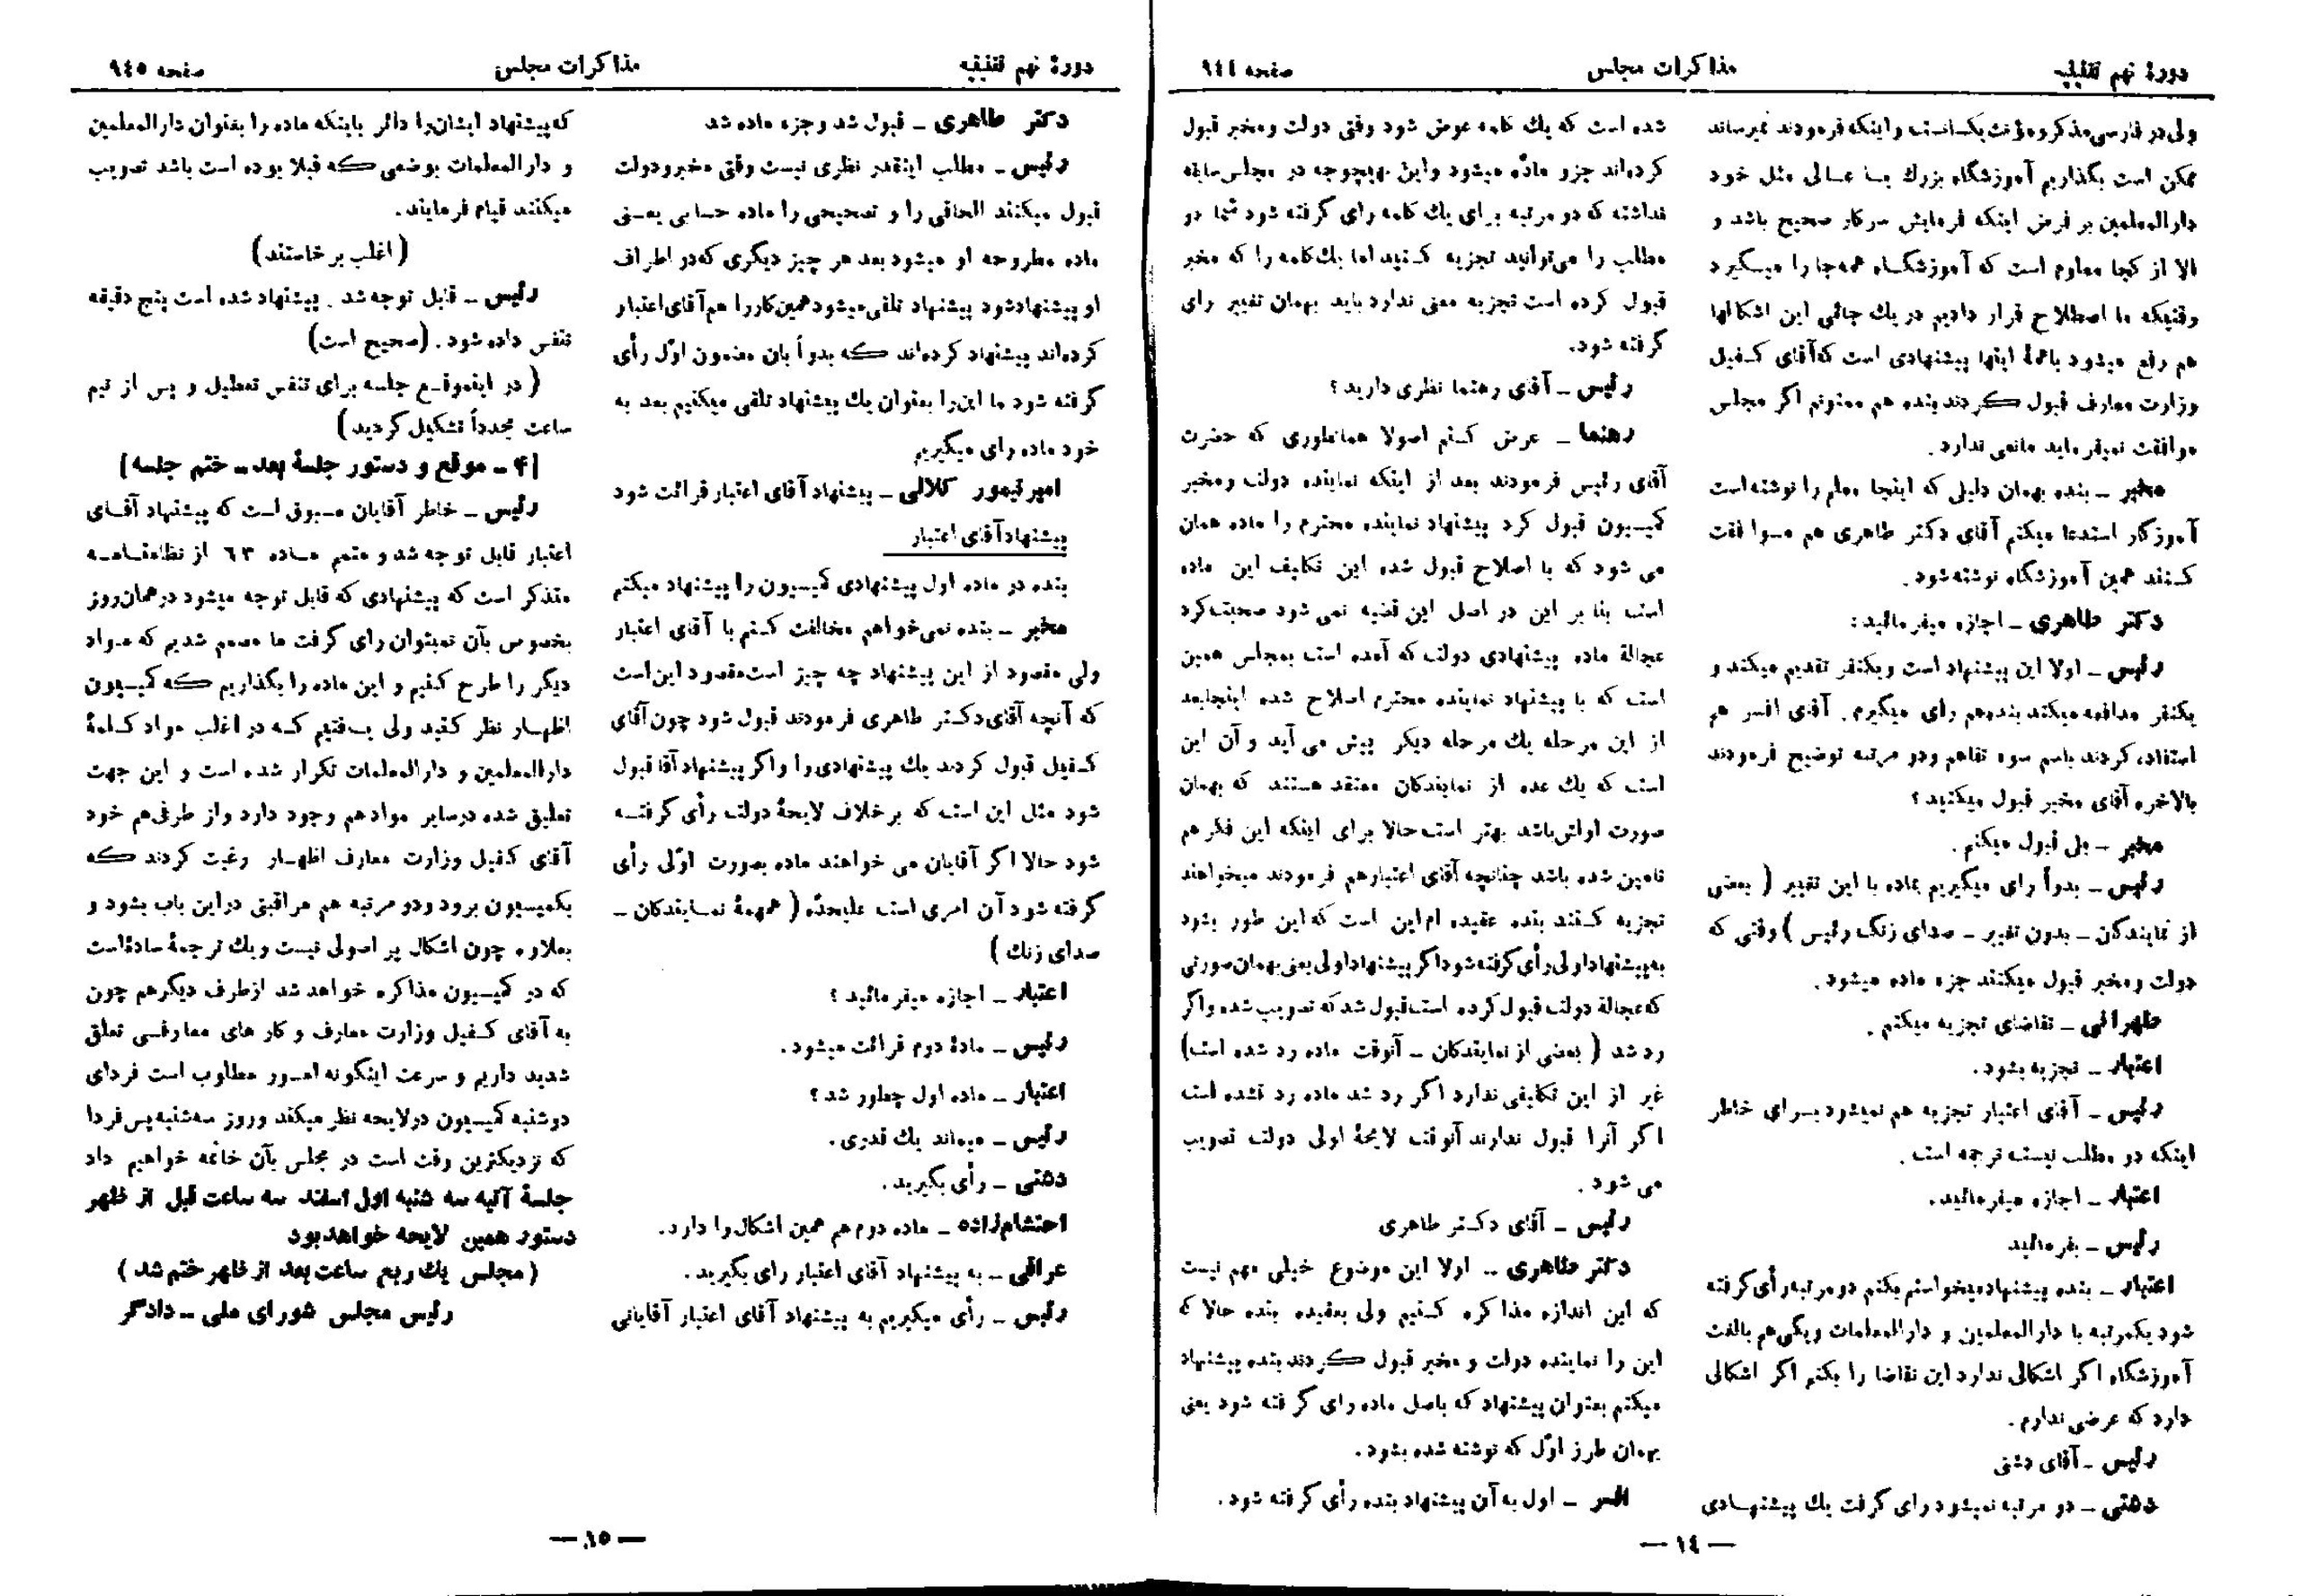 دورهٔ نهم تقنینیه
مذاکرات مجلس
صفحه ٩٤٤
ولی در فارسی مذکر و مؤنث یکسانست و اینکه فرمودند نمیرساند
ممکن است بگذاریم آموزشگاه بزرك یا عالی مثل خود
دارالمعلمین بر فرض اینکه فرمایش سرکار صحیح باشد و
الا از کجا معلوم است که آموزشگاه همه‌جا را میگیرد
وقتیکه ما اصطلاح قرار دادیم در یك جائی این اشکالها
هم رفع میشود با همهٔ اینها پیشنهادی است که آقای کفیل
وزارت معارف قبول کردند بنده هم ممنونم اگر مجلس
موافقت نمیفرماید مانعی ندارد.
مخبر ــ بنده بهمان دلیلی که اینجا معلم را نوشته است
آموزگار استدعا میکنم آقای دکتر طاهری هم موافقت
کنند همین آموزشگاه نوشته شود.
دکتر طاهری ــ اجازه میفرمائید:
رئیس ــ اولا این پیشنهاد است و یکنفر تقدیم میکند و
یکنفر مدافعه میکند بنده‌هم رأی میگیرم. آقای افسر هم
استفاده کردند باسم سوء تفاهم و دو مرتبه توضیح فرمودند
بالاخره آقای مخبر قبول میکنید؟
مخبر ــ بلی قبول میکنم.
رئیس ــ بدواً رای میگیریم بماده با این تغییر ( بعضی
از نمایندگان ــ بدون تغییر ــ صدای زنگ رئیس ) وقتی که
دولت و مخبر قبول میکنند جزء ماده میشود.
طهرانی ــ تقاضای تجزیه میکنم.
اعتبار ــ تجزیه بشود.
رئیس ــ آقای اعتبار تجزیه هم نمیشود برای خاطر
اینکه دو مطلب نیست ترجمه است.
اعتبار ــ اجازه میفرمائید.
رئیس ــ بفرمائید
اعتبار ــ بنده پیشنهاد میخواستم بکنم دو مرتبه رأی گرفته
شود یکمرتبه با دارالمعلمین و دارالمعلمات ویکی هم بالغت
آموزشگاه اگر اشکالی ندارد این تقاضا را بکنم اگر اشکالی
دارد که عرضی ندارم.
رئیس ــ آقای دشتی
دشتی ــ دو مرتبه نمیشود رای گرفت یك پیشنهادی
شده است که یك کلمه عوض شود وقتی دولت و مخبر قبول
کرده‌اند جزو ماده میشود و این بهیچوجه در مجلس سابقه
نداشته که دو مرتبه برای یك کلمه رای گرفته شود شما دو
مطلب را می‌توانید تجزیه کنید اما یك کلمه را که مخبر
قبول کرده است تجزیه معنی ندارد باید بهمان تغییر رای
گرفته شود.
رئیس ــ آقای رهنما نظری دارید؟
رهنما ــ عرض کنم اصولا همانطوری که حضرت
آقای رئیس فرمودند بعد از اینکه نماینده دولت و مخبر
کمیسیون قبول کرد پیشنهاد نماینده محترم را ماده همان
می شود که با اصلاح قبول شده این تکلیف این ماده
است بنا بر این در اصل این قضیه نمی شود صحبت کرد
عجالة ماده پیشنهادی دولت که آمده است بمجلس همین
است که با پیشنهاد نماینده محترم اصلاح شده اینجا بعد
از این مرحله یك مرحله دیگر پیش می آید و آن این
است که یك عده از نمایندگان معتقد هستند که بهمان
صورت اولش باشد بهتر است حالا برای اینکه این فکر هم
تامین شده باشد چنانچه آقای اعتبار هم فرمودند میخواهند
تجزیه کنند بنده عقیده ام این است که این طور بشود
به پیشنهاد اولی رأی گرفته شود اگر پیشنهاد اولی یعنی بهمان صورتی
که عجالة دولت قبول کرده است قبول شد که تصویب شده و اگر
رد شد ( بعضی از نمایندکان ــ آنوقت ماده رد شده است)
غیر از این تکلیفی ندارد اگر رد شد ماده رد نشده است
اگر آنرا قبول ندارند آنوقت لایحهٔ اولی دولت تصویب
می شود.
رئیس ــ آقای دکتر طاهری
دکتر طاهری ــ اولا این موضوع خیلی مهم نیست
که این اندازه مذاکره کنیم ولی بعقیده بنده حالا که
این را نماینده دولت و مخبر قبول کردند بنده پیشنهاد
میکنم بعنوان پیشنهاد که باصل ماده رای گرفته شود یعنی
بهمان طرز اوّل که نوشته شده بشود.
افسر ــ اول به آن پیشنهاد بنده رأی گرفته شود.
— ١٤ —
دورهٔ نهم تقنینیه
مذاکرات مجلس
صفحه ٩٤٥
دکتر طاهری ــ قبول شد و جزء ماده شد
رئیس ــ مطلب اینقدر نظری نیست وقتی مخبر و دولت
قبول میکنند الحاقی را و تصحیحی را ماده حسابی یعنی
ماده مطروحه او میشود بعد هر چیز دیگری که در اطراف
او پیشنهاد شود پیشنهاد تلقی میشود همین کار را هم آقای اعتبار
کرده‌اند پیشنهاد کرده‌اند که بدواً بان مضمون اوّل رأی
گرفته شود ما این را بعنوان یك پیشنهاد تلقی میکنیم بعد به
خود ماده رای میگیریم
امیر تیمور کلالی ــ پیشنهاد آقای اعتبار قرائت شود
پیشنهاد آقای اعتبار
بنده در ماده اول پیشنهادی کمیسیون را پیشنهاد میکنم
مخبر ــ بنده نمی‌خواهم مخالفت کنم با آقای اعتبار
ولی مقصود از این پیشنهاد چه چیز است مقصود این است
که آنچه آقای دکتر طاهری فرمودند قبول شود چون آقای
کفیل قبول کردند یك پیشنهادی را و اگر پیشنهاد آقا قبول
شود مثل این است که برخلاف لایحهٔ دولت رأی گرفته
شود حالا اگر آقایان می خواهند ماده بصورت اوّلی رأی
گرفته شود آن امری است علیحدّه ( همهمهٔ نمایندکان ــ
صدای زنك )
اعتبار ــ اجازه میفرمائید؟
رئیس ــ مادهٔ دوم قرائت میشود.
اعتبار ــ ماده اول چطور شد؟
رئیس ــ میماند یك قدری.
دشتی ــ رأی بگیرید.
احتشام‌زاده ــ ماده دوم هم همین اشکال را دارد.
عراقی ــ به پیشنهاد آقای اعتبار رای بگیرید.
رئیس ــ رأی میگیریم به پیشنهاد آقای اعتبار آقایانی
که پیشنهاد ایشان را دائر باینکه ماده را بعنوان دارالمعلمین
و دارالمعلمات بوضعی که قبلا بوده است باشد تصویب
میکنند قیام فرمایند.
(اغلب برخاستند)
رئیس ــ قابل توجه شد. پیشنهاد شده است پنج دقیقه
تنفس داده شود. (صحیح است)
( در اینموقع جلسه برای تنفس تعطیل و پس از نیم
ساعت مجدداً تشکیل گردید)
[۴ ــ موقع و دستور جلسهٔ بعد ــ ختم جلسه]
رئیس ــ خاطر آقایان مسبوق است که پیشنهاد آقای
اعتبار قابل توجه شد و متمم ماده ٦٣ از نظامنامه
متذکر است که پیشنهادی که قابل توجه میشود در همان روز
بخصوص بآن نمیتوان رای گرفت ما مصمم شدیم که مواد
دیگر را طرح کنیم و این ماده را بگذاریم که کمیسیون
اظهار نظر کنید ولی بعد دیدیم که در اغلب مواد کلمهٔ
دارالمعلمین و دارالمعلمات تکرار شده است و این جهت
تعلیق شده درسایر مواد هم وجود دارد و از طرفی هم خود
آقای کفیل وزارت معارف اظهار رغبت کردند که
بکمیسیون برود و دو مرتبه هم مراقبتی دراین باب بشود و
بعلاوه چون اشکال پر اصولی نیست ویك ترجمهٔ ساده‌است
که در کمیسیون مذاکره خواهد شد ازطرف دیگرهم چون
به آقای کفیل وزارت معارف و کار های معارفی تعلق
شدید داریم و سرعت اینگونه امور مطلوب است فردای
دوشنبه کمیسیون درلایحه نظر میکند و روز سه‌شنبه پس‌فردا
که نزدیکترین وقت است در مجلس بآن خاتمه خواهیم داد
جلسهٔ آتیه سه شنبه اول اسفند سه ساعت قبل از ظهر
دستور همین لایحه خواهد بود
( مجلس یك ربع ساعت بعد از ظهر ختم شد )
رئیس مجلس شورای ملی ــ دادگر
— ١٥ —